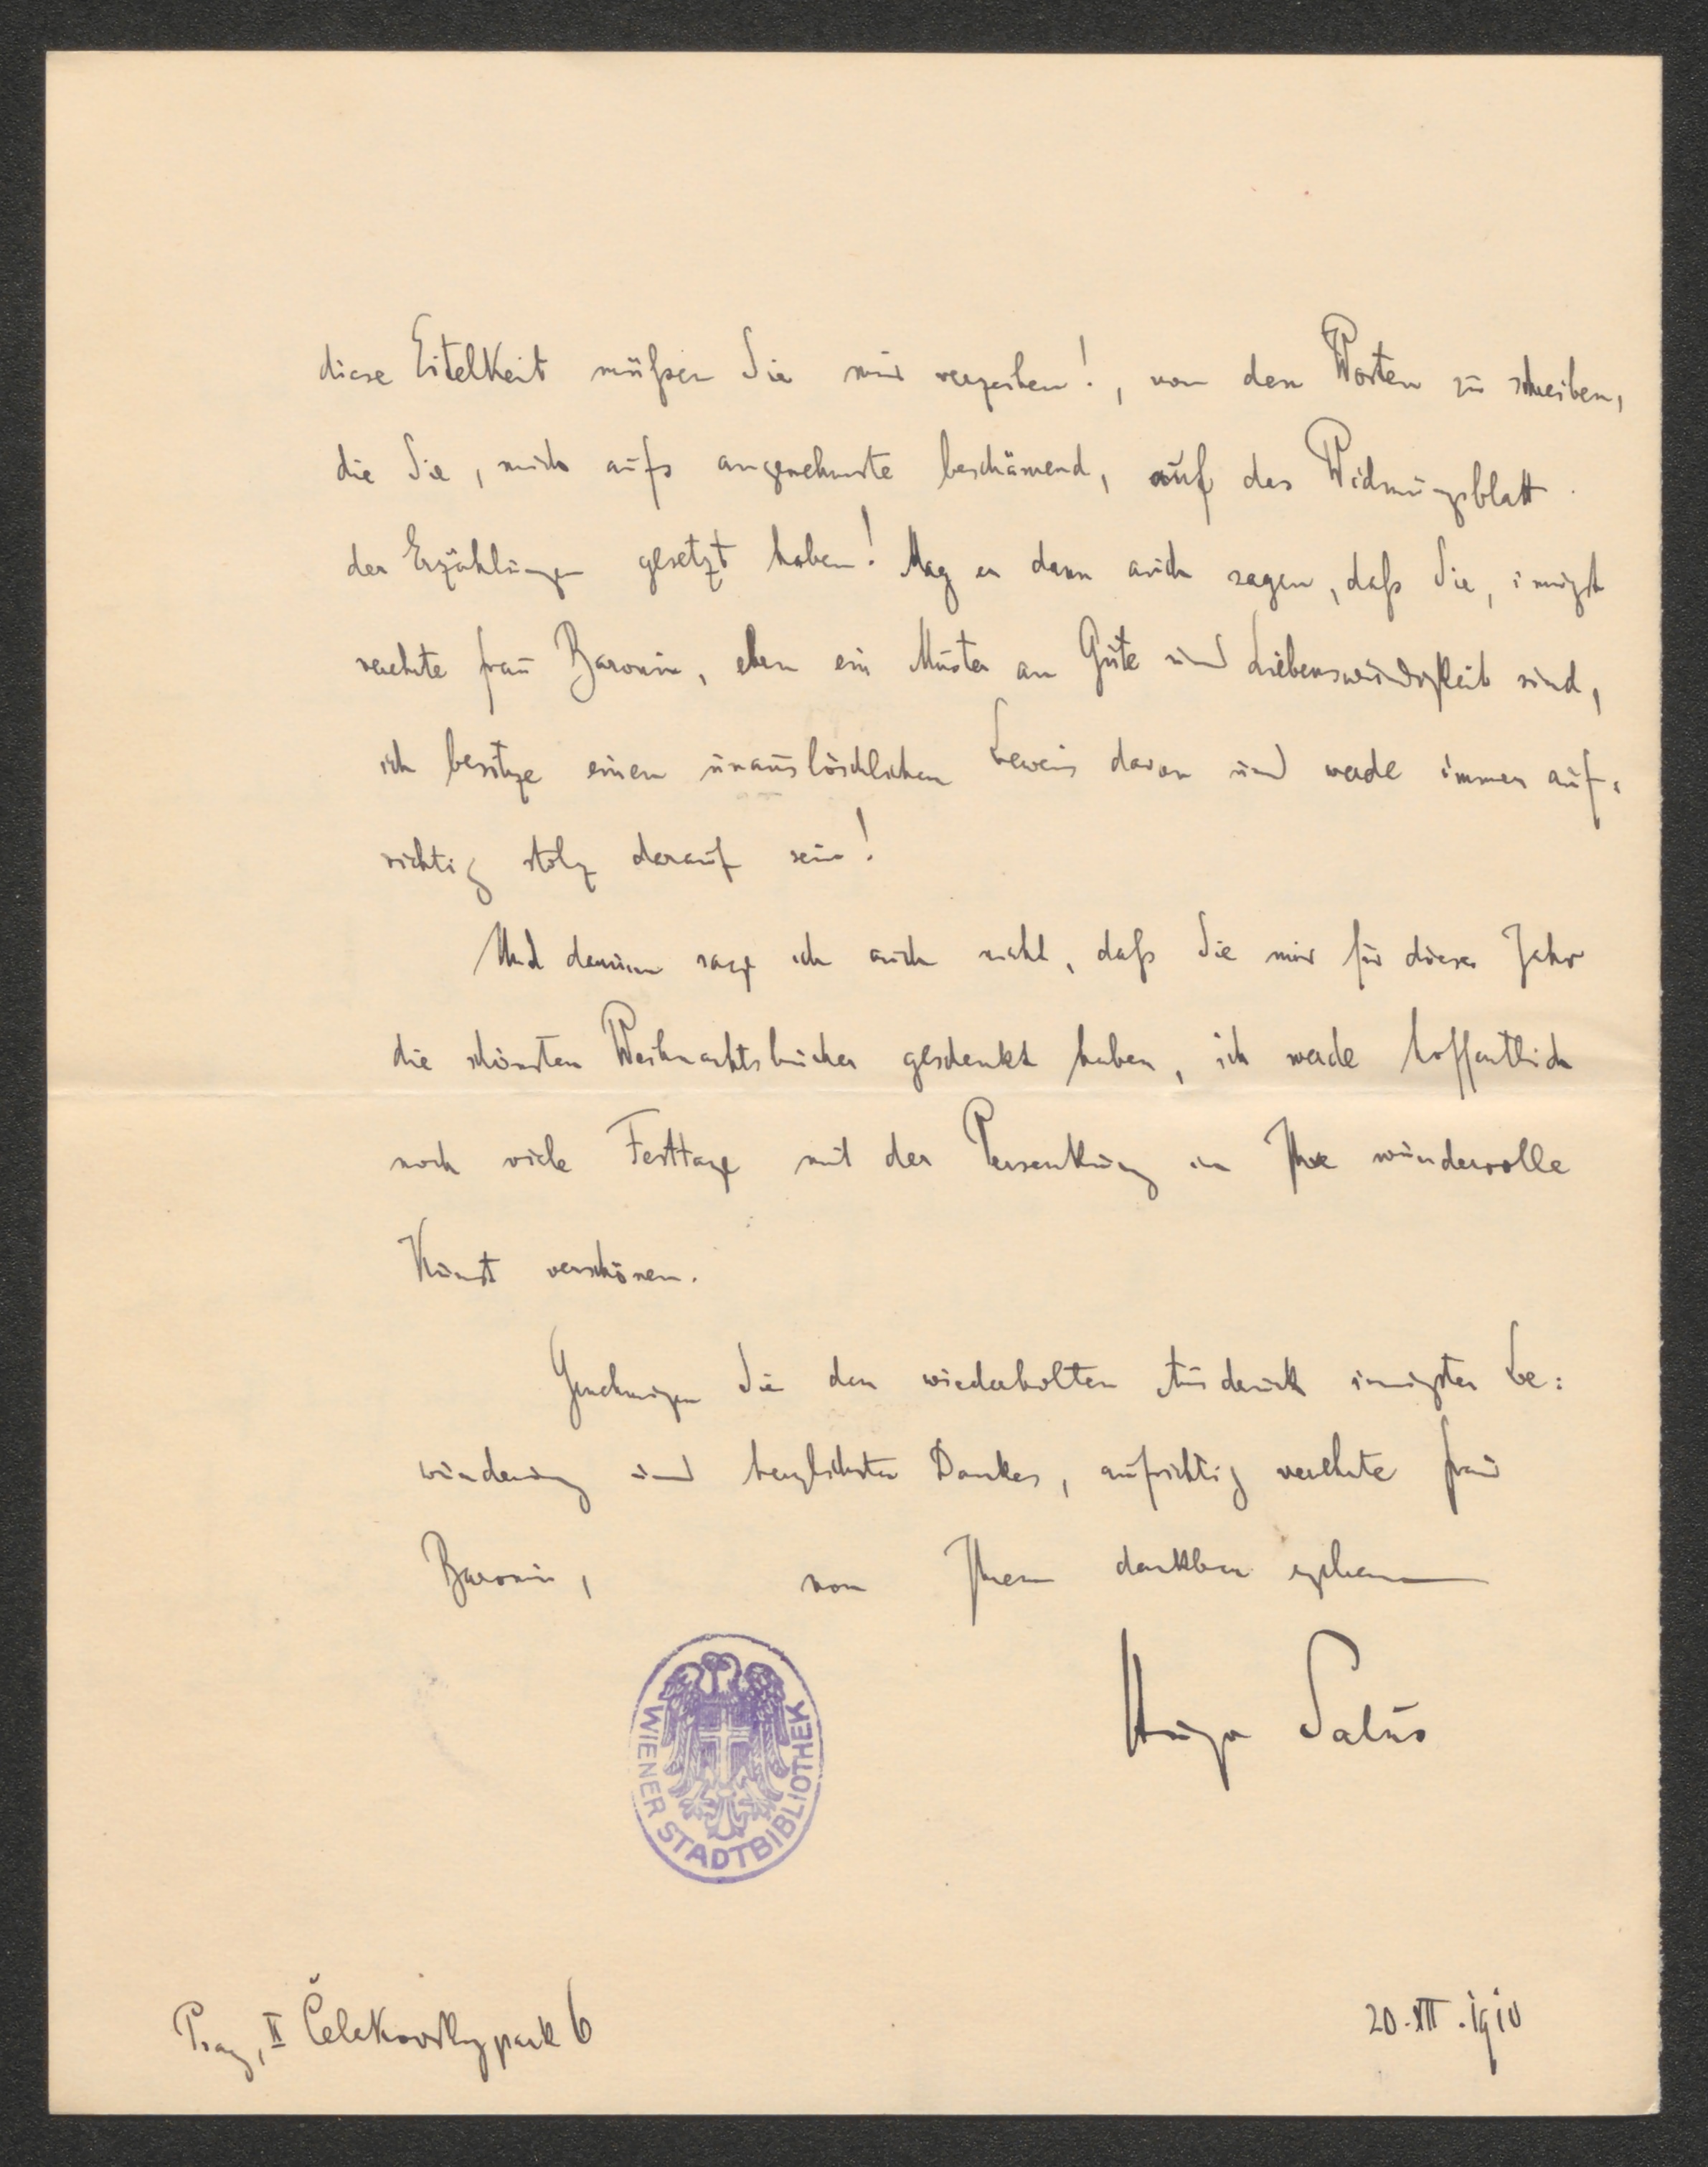 diese Eitelkeit müßen Sie mir verzeihen!, von den Worten zu schreiben,
die Sie, mich aufs angenehmste beschämend, auf das Widmungsblatt
der Erzählungen gesetzt haben! Mag er dann auch sagen, daß Sie, innigst
verehrte Frau Baronin, eben ein Muster an Güte und Liebenswürdigkeit sind,
ich besitze einen unauslöschlichen Beweis davon und werde immer auf-
richtig stolz darauf sein!
Und darum sage ich auch nicht, daß Sie mir für dieses Jahr
die schönsten Weihnachtsbücher geschenkt haben, ich werde hoffentlich
noch viele Festtage mit der Versenkung in Ihre wundervolle
Kunst verschönen.
Genehmigen Sie den wiederholten Ausdruck innigster Be:
wunderung und herzlichsten Dankes, aufrichtig verehrte Frau
Baronin, von Ihrem dankbar ergebenen
Hugo Salus
WIENER STADTBIBLIOTHEK
Prag, II Čelakovskypark 6
20.XII.1910